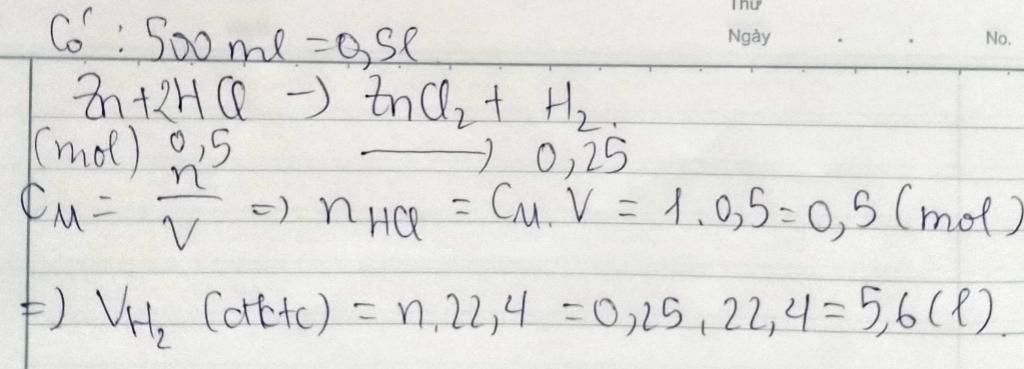 Thứ
Ngày . . No.
Có : 500 ml = 0,5l
Zn + 2HCl -> ZnCl₂ + H₂.
(mol) 0,5 ⟶ 0,25
C_M = n/V => n_HCl = C_M. V = 1. 0,5 = 0,5 (mol)
=> V_H₂ (đktc) = n. 22,4 = 0,25 . 22,4 = 5,6 (l).